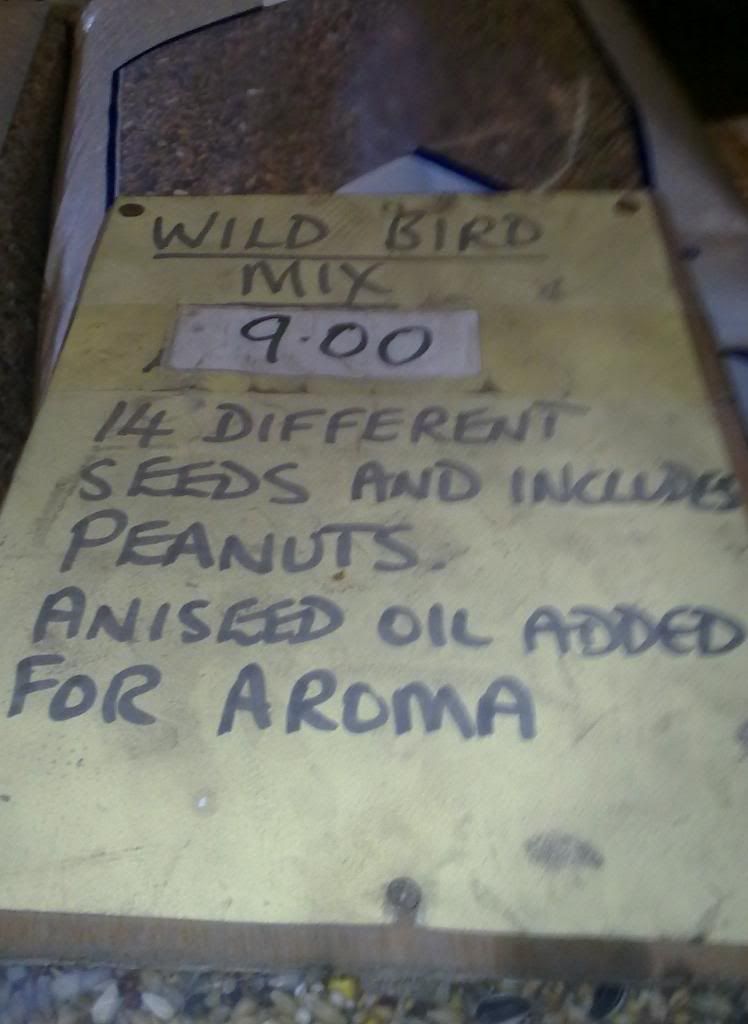 WILD BIRD
MIX
9.00
14 DIFFERENT
SEEDS AND INCLUDES
PEANUTS.
ANISEED OIL ADDED
FOR AROMA